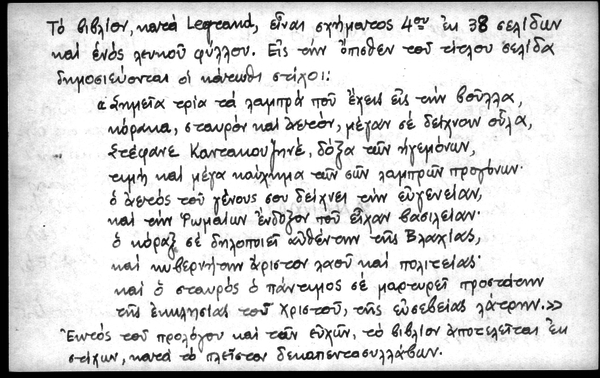 Τὸ βιβλίον, κατὰ Legrand, εἶναι σχήματος 4ου ἐκ 38 σελίδων
καὶ ἑνὸς λευκοῦ φύλλου. Εἰς τὴν ὄπισθεν τοῦ τίτλου σελίδα
δημοσιεύονται οἱ κάτωθι στίχοι:
«Σημεῖα τρία τὰ λαμπρὰ ποῦ ἔχεις εἰς τὴν βοῦλλα,
κόρακα, σταυρὸν καὶ ἀετὸν, μέγαν σὲ δείχνουν οὗλα,
Στέφανε Καντακουζηνέ, δόξα τῶν ἡγεμόνων,
τιμὴ καὶ μέγα καύχημα τῶν σῶν λαμπρῶν προγόνων·
ὁ ἀετὸς τοῦ γένους σου δείχνει τὴν εὐγενείαν,
καὶ τὴν Ῥωμαίων ἔνδοξον ποῦ εἶχαν βασιλείαν·
ὁ κόραξ σὲ δηλοποιεῖ αὐθέντην τῆς Βλαχίας,
καὶ κυβερνήτην ἄριστον λαοῦ καὶ πολιτείας·
καὶ ὁ σταυρὸς ὁ πάντιμος σὲ μαρτυρεῖ προστάτην
τῆς ἐκκλησίας τοῦ Χριστοῦ, τῆς εὐσεβείας λάτρην.»
Ἐκτὸς τοῦ προλόγου καὶ τῶν εὐχῶν, τὸ βιβλίον ἀποτελεῖται ἐκ
στίχων, κατὰ τὸ πλεῖστον δεκαπεντασυλλάβων.